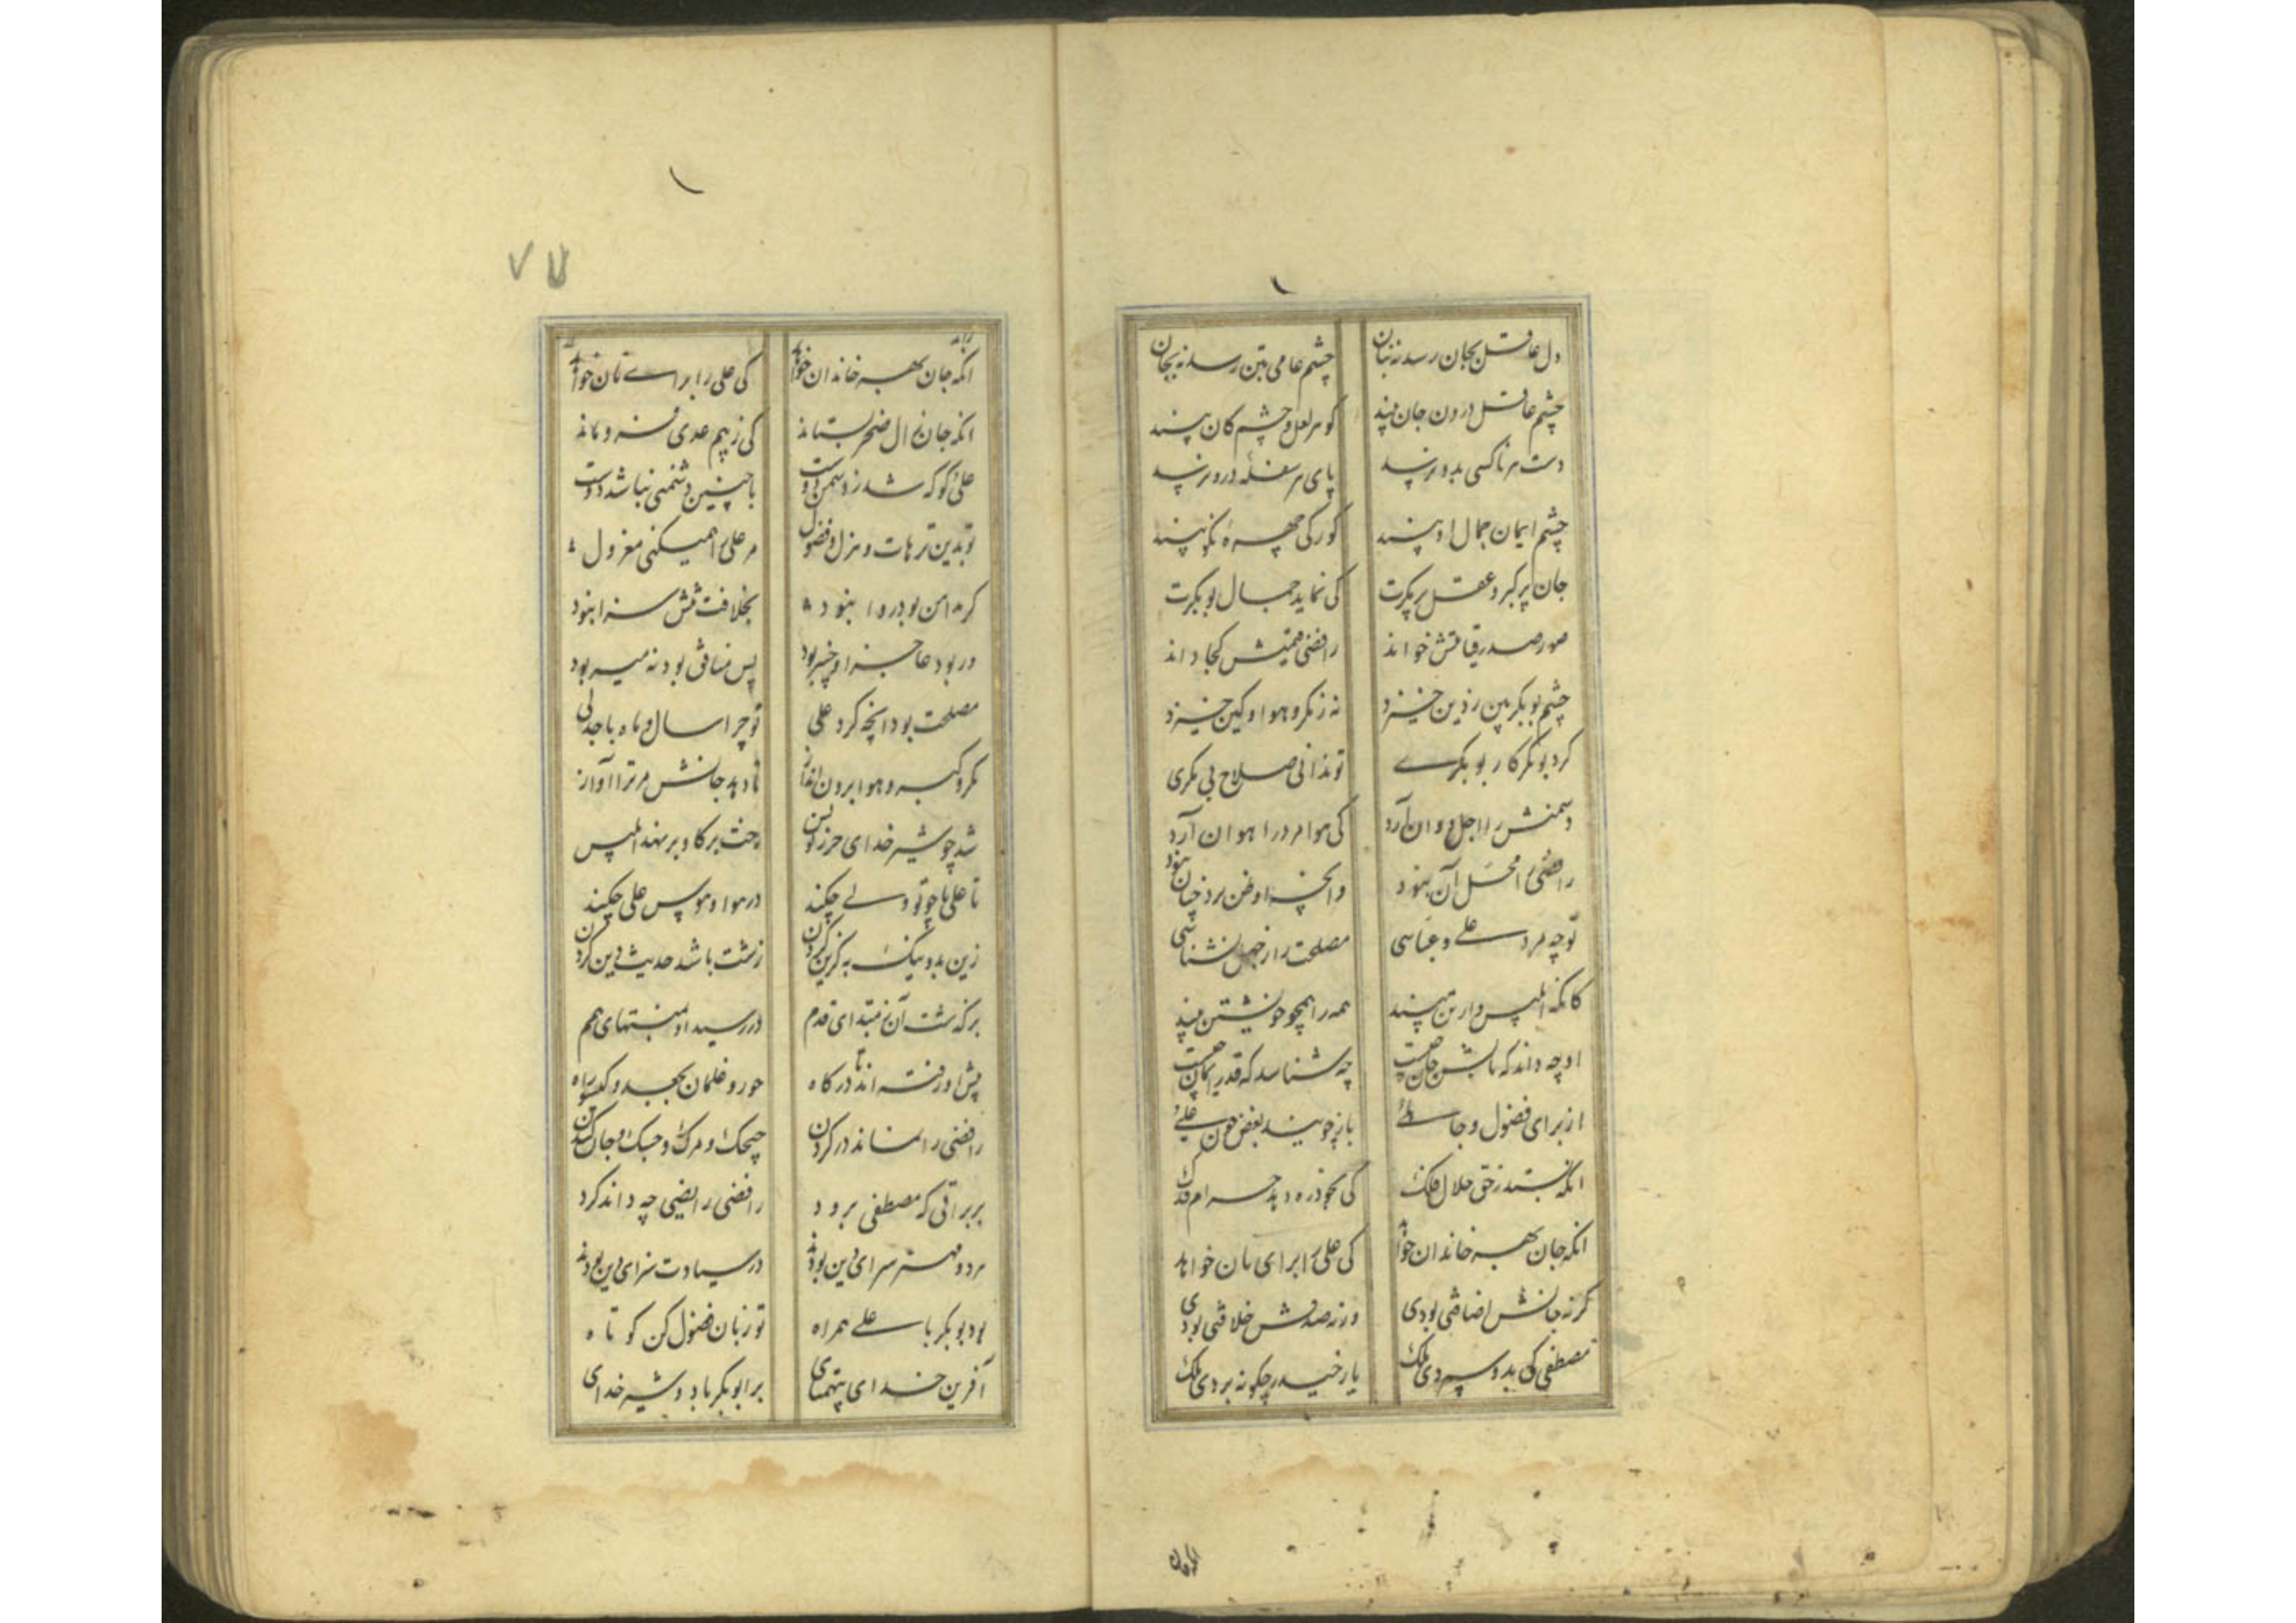 دل عاقل بجان رسد نه بنان
چشم عامی بتن رسد نه بجان
چشم عاقل درون جان بیند
کور لعل و چشم کان بیند
دست هر ناکسی بدو نرسد
پای هر سفله درو نرسد
چشم ایمان جمال او بیند
کور کی چهره نکو بیند
جان پر کبر و عقل پر مکرت
کی نماید جمال بوبکرت
صورصدر قیامتش خواند
رافضی قیمتش کجا داند
چشم بوبکر بین ز دین خیزد
نه ز مکر و هوا و کین خیزد
کرد بوبکر کار بوبکری
تو ندانی صلاح بی مکری
دشمنش را اجل دوان آرد
کی هوا مرد را هوان آرد
رافضی را محل آن نبود
وانچه او ظن برد چنان نبود
تو چه مرد علی و عباسی
مصلحت را ز جهل نشناسی
کانکه ابلیس وار تن بیند
همه را همچو خویشتن بیند
او چه داند که تابش جان چیست
چه شناسد که قدر ایمان چیست
از برای فضول و جاهلی
باز جوید بغض خون علی
انکه نستد ز حق حلال فلک
کی بخود ره دهد حرام فدک
انکه جان بهر خاندان خواهد
کی علی را برای نان خواهد
گر نه جانش اضافتی بودی
ورنه صدقش خلافتی بودی
مصطفی کی بدو سپردی ملک
یار حیدر چگونه بردی ملک
۷۵
انکه جان بهر خاندان خواهد
کی علی را برای نان خواهد
انکه جان ز ال ضخر بستاند
کی ز بیم عدی فرو ماند
علی کو که شد ز دشمن دوست
با چنین دشمنی نباشد دوست
تو بدین ترهات و هزل و فضول
مر علی را همیکنی معزول
کر مدامن بود روا نبود
بخلافت تنش سزا نبود
ور بود عاجز او چنیر بود
پس منافق بود نه میر بود
مصلحت بود انچه کرد علی
تو چرا سال و ماه با جدلی
مکر و کبر و هوا برون انداز
تا دهد جانش مر ترا آواز
شد چو شیر خدای حرز نویس
رخت برکاو بر نهد ابلیس
تا علی با چو تو ولی چکند
در هوا و هوس علی چکند
زین بد و نیک به گزین کردن
زشت باشد حدیث دین کردن
بر گذشت آن ز مبتدای قدم
در رسید او بمنتهای همم
پیش او رفته اند تا درگاه
حور و غلمان بجعد و گیسو راه
رافضی را نماند در گردن
چیچک و مرگ و جسک و جان کندن
بر براقی که مصطفی برود
رافضی رایضی چه داند کرد
هر دو مهتر سرای دین بودند
در سیادت سزای دین بودند
بود بوبکر با علی همراه
تو زبان فضول کن کوتاه
آفرین خدای بیهمتای
بر ابوبکر باد و شیر خدای